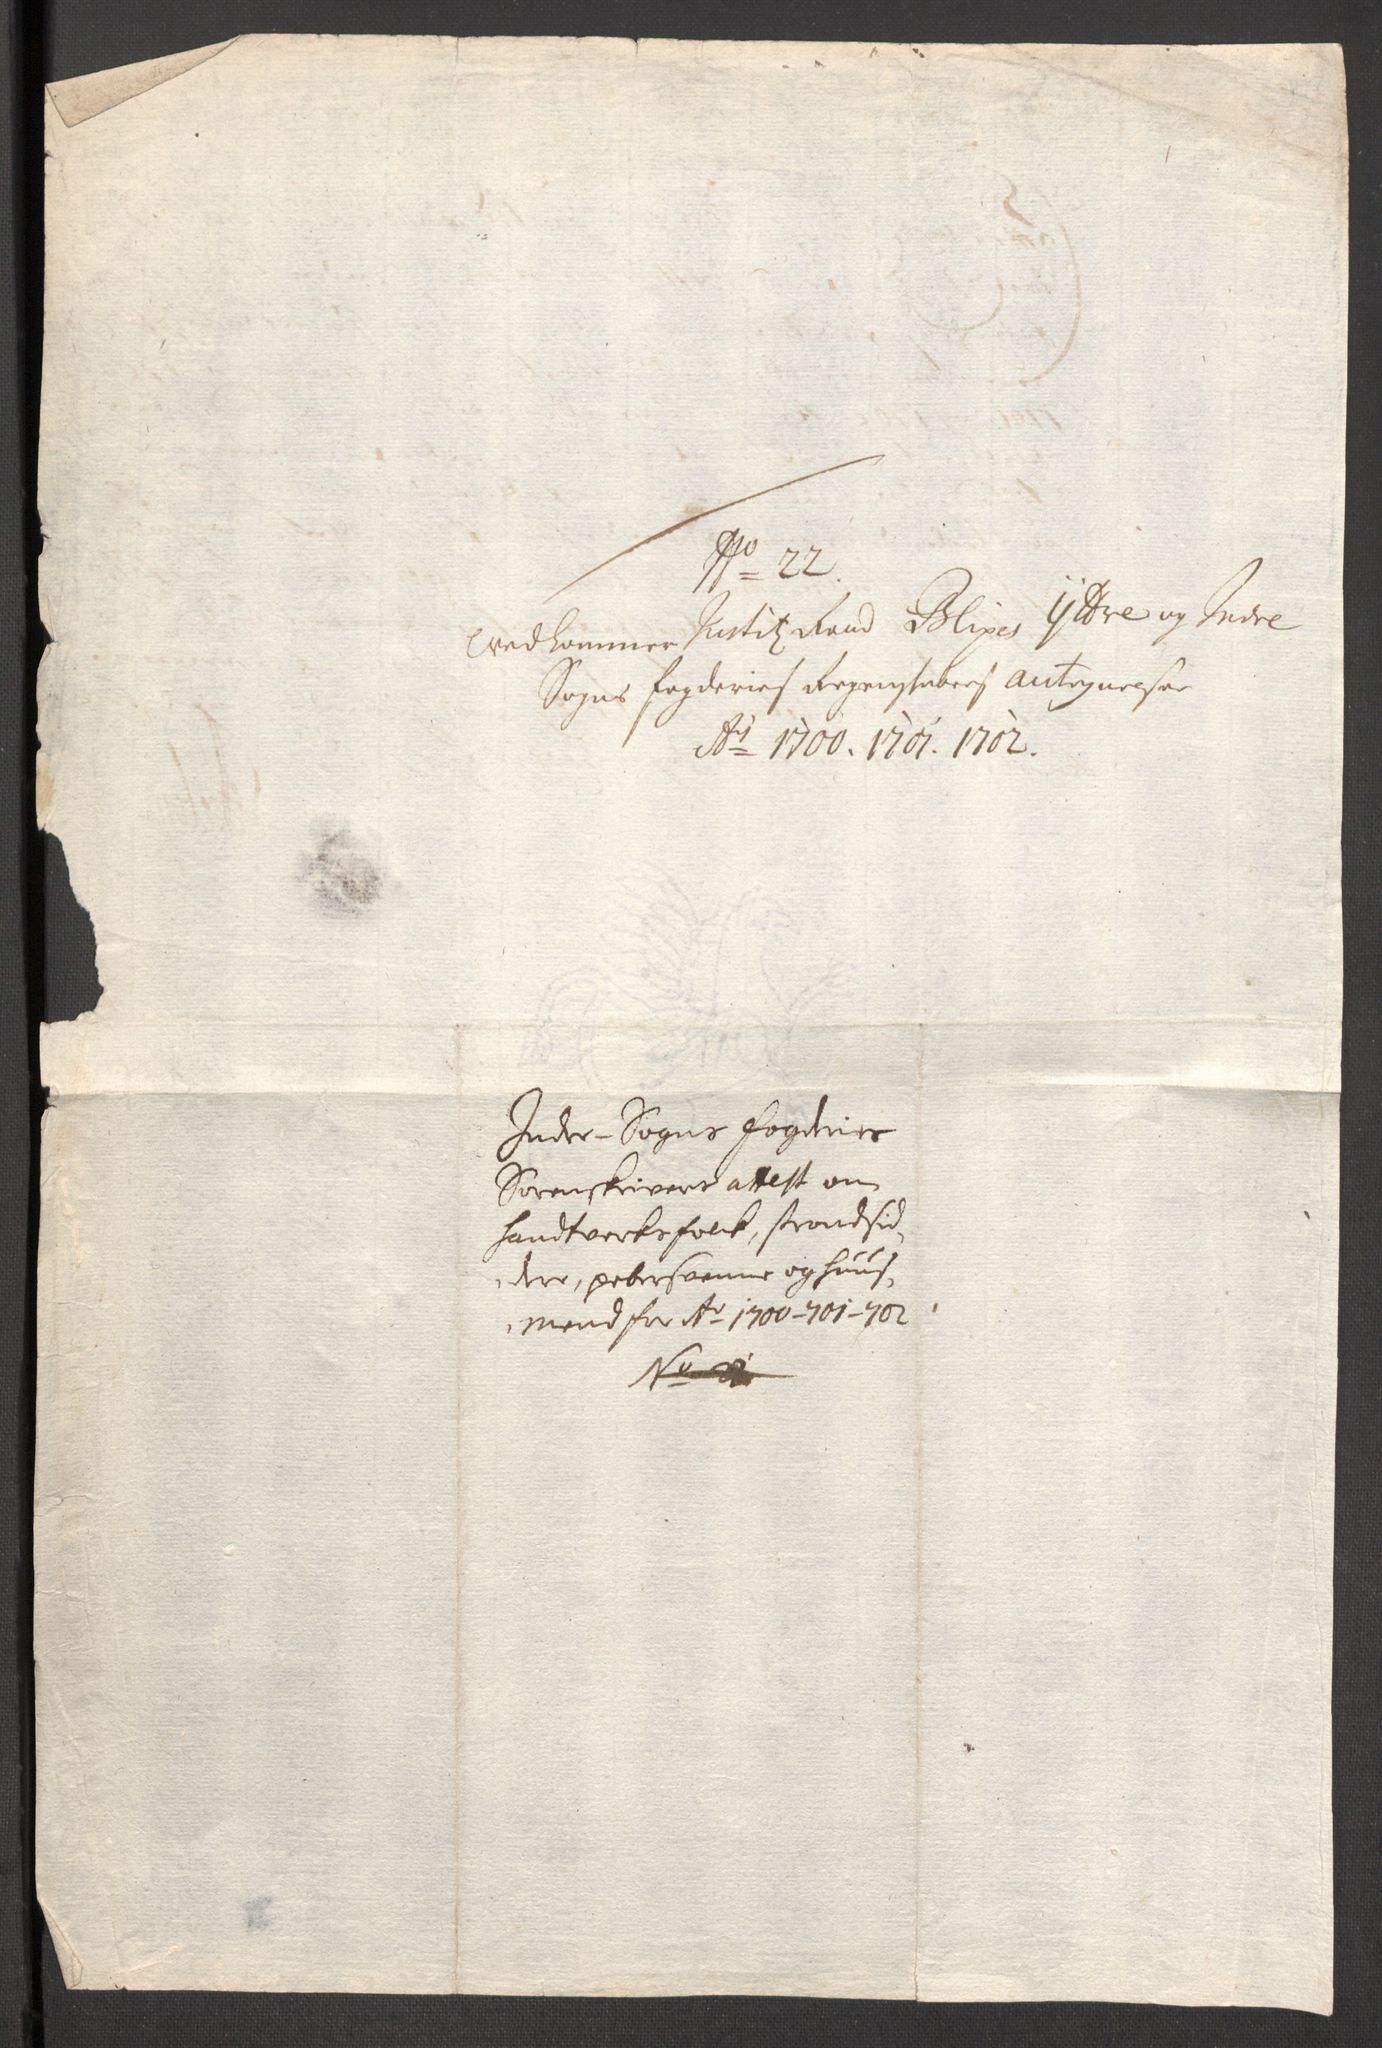 No 22.
Vedkommer Justitz Raad Blixes Ÿttre og Indre
Sogns fogderies Regenskabers antegnelser
Ao 1700. 1701. 1702.
Inder-Sogns fogderies
Sorenskrivers attest om
handtverksfolck, strandsid-
dere, pebersvenne og huus-
mend for Ao 1700-701-702
No